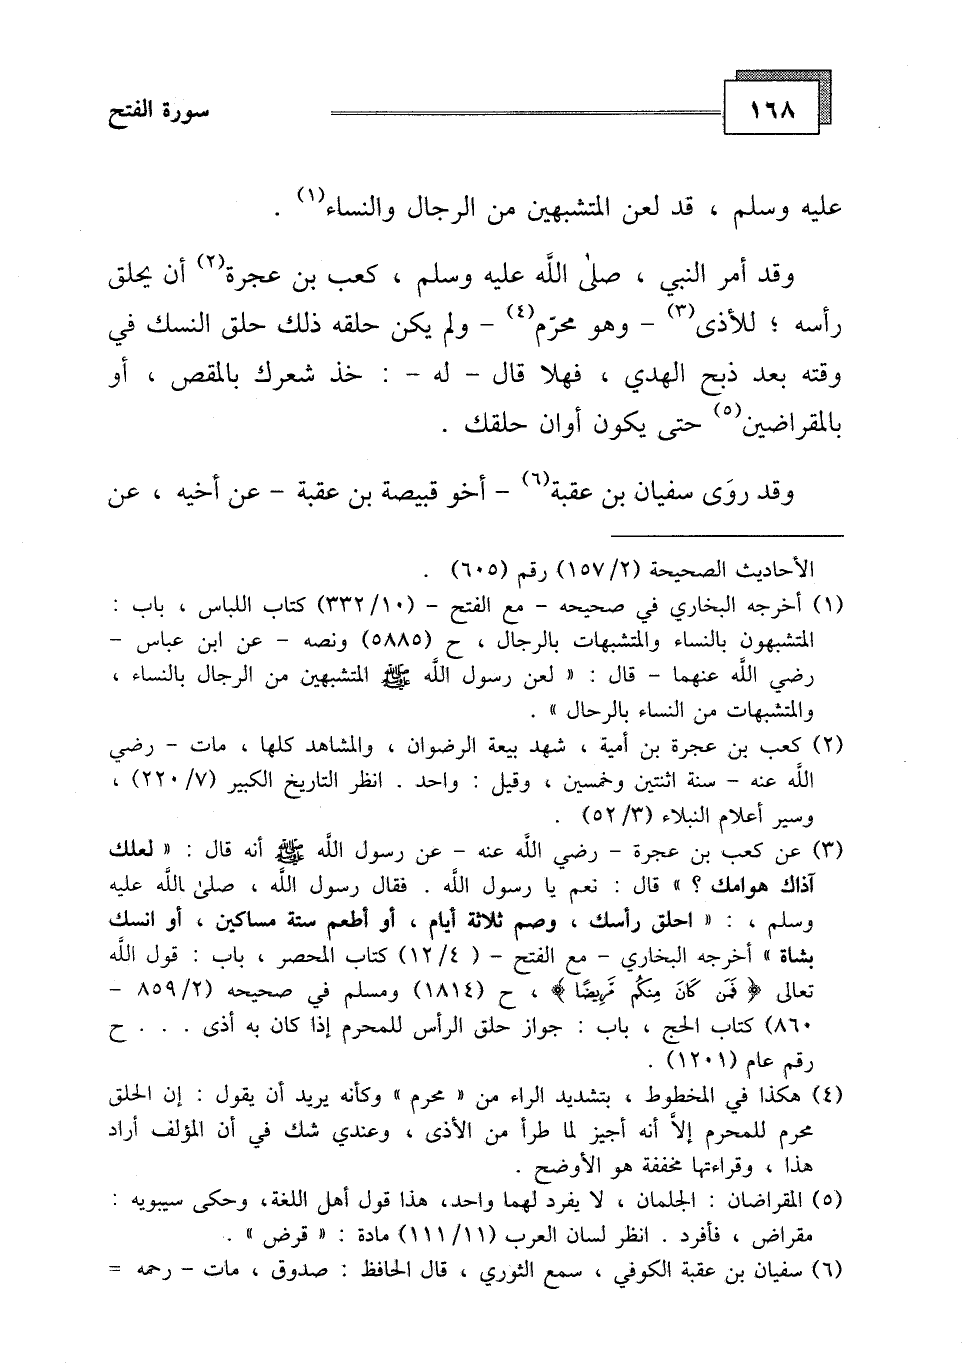 ١٦٨ سورة الفتح
عليه وسلم ، قد لعن المتشبهين من الرجال والنساء(١) .
وقد أمر النبي ، صلىٰ اللَّه عليه وسلم ، كعب بن عجرة(٢) أن يحلق
رأسه ؛ للأذى(٣) - وهو محرّم(٤) - ولم يكن حلقه ذلك حلق النسك في
وقته بعد ذبح الهدي ، فهلا قال - له - : خذ شعرك بالمقص ، أو
بالمقراضين(٥) حتى يكون أوان حلقك .
وقد روَى سفيان بن عقبة(٦) - أخو قبيصة بن عقبة - عن أخيه ، عن
الأحاديث الصحيحة (١٥٧/٢) رقم (٦٠٥) .
(١) أخرجه البخاري في صحيحه - مع الفتح - (٣٣٢/١٠) كتاب اللباس ، باب :
المتشبهون بالنساء والمتشبهات بالرجال ، ح (٥٨٨٥) ونصه - عن ابن عباس -
رضي اللَّه عنهما - قال : « لعن رسول اللَّه ﷺ المتشبهين من الرجال بالنساء ،
والمتشبهات من النساء بالرحال » .
(٢) كعب بن عجرة بن أمية ، شهد بيعة الرضوان ، والمشاهد كلها ، مات - رضي
اللَّه عنه - سنة اثنتين وخمسين ، وقيل : واحد . انظر التاريخ الكبير (٢٢٠/٧) ،
وسير أعلام النبلاء (٥٢/٣) .
(٣) عن كعب بن عجرة - رضي اللَّه عنه - عن رسول اللَّه ﷺ أنه قال : « لعلك
آذاك هوامك ؟ » قال : نعم يا رسول اللَّه . فقال رسول اللَّه ، صلىٰ اللَّه عليه
وسلم ، : « احلق رأسك ، وصم ثلاثة أيام ، أو أطعم ستة مساكين ، أو انسك
بشاة » أخرجه البخاري - مع الفتح - ( ١٢/٤) كتاب المحصر ، باب : قول اللَّه
تعالى ﴿ فَمَن كَانَ مِنكُم مَّرِيضًا ﴾ ، ح (١٨١٤) ومسلم في صحيحه (٨٥٩/٢ -
٨٦٠) كتاب الحج ، باب : جواز حلق الرأس للمحرم إذا كان به أذى . . . ح
رقم عام (١٢٠١) .
(٤) هكذا في المخطوط ، بتشديد الراء من « محرم » وكأنه يريد أن يقول : إن الحلق
محرم للمحرم إلاَّ أنه أجيز لما طرأ من الأذى ، وعندي شك في أن المؤلف أراد
هذا ، وقراءتها مخففة هو الأوضح .
(٥) المقراضان : الجلمان ، لا يفرد لهما واحد، هذا قول أهل اللغة، وحكى سيبويه :
مقراض ، فأفرد . انظر لسان العرب (١١١/١١) مادة : « قرض » .
(٦) سفيان بن عقبة الكوفي ، سمع الثوري ، قال الحافظ : صدوق ، مات - رحمه =